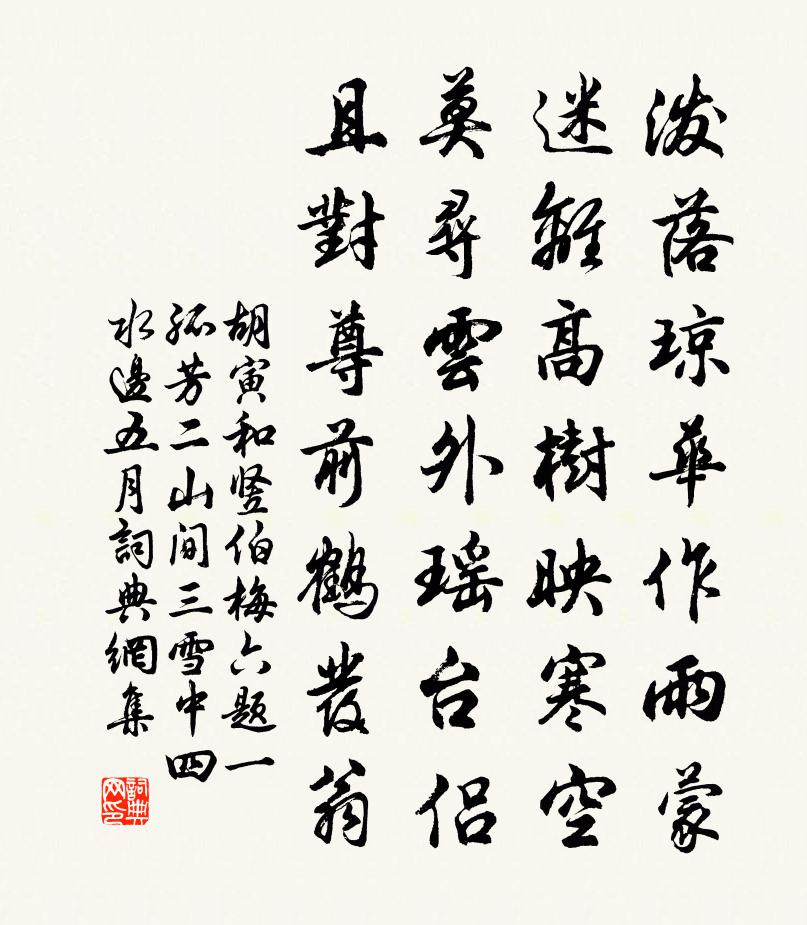 潑落琼華作雨蒙
迷離高樹映寒空
莫尋雲外瑶台侣
且對尊前鶴发翁
胡寅和竖伯梅六题一
孤芳二山间三雪中四
水邊五月詞典網集
詞典网印